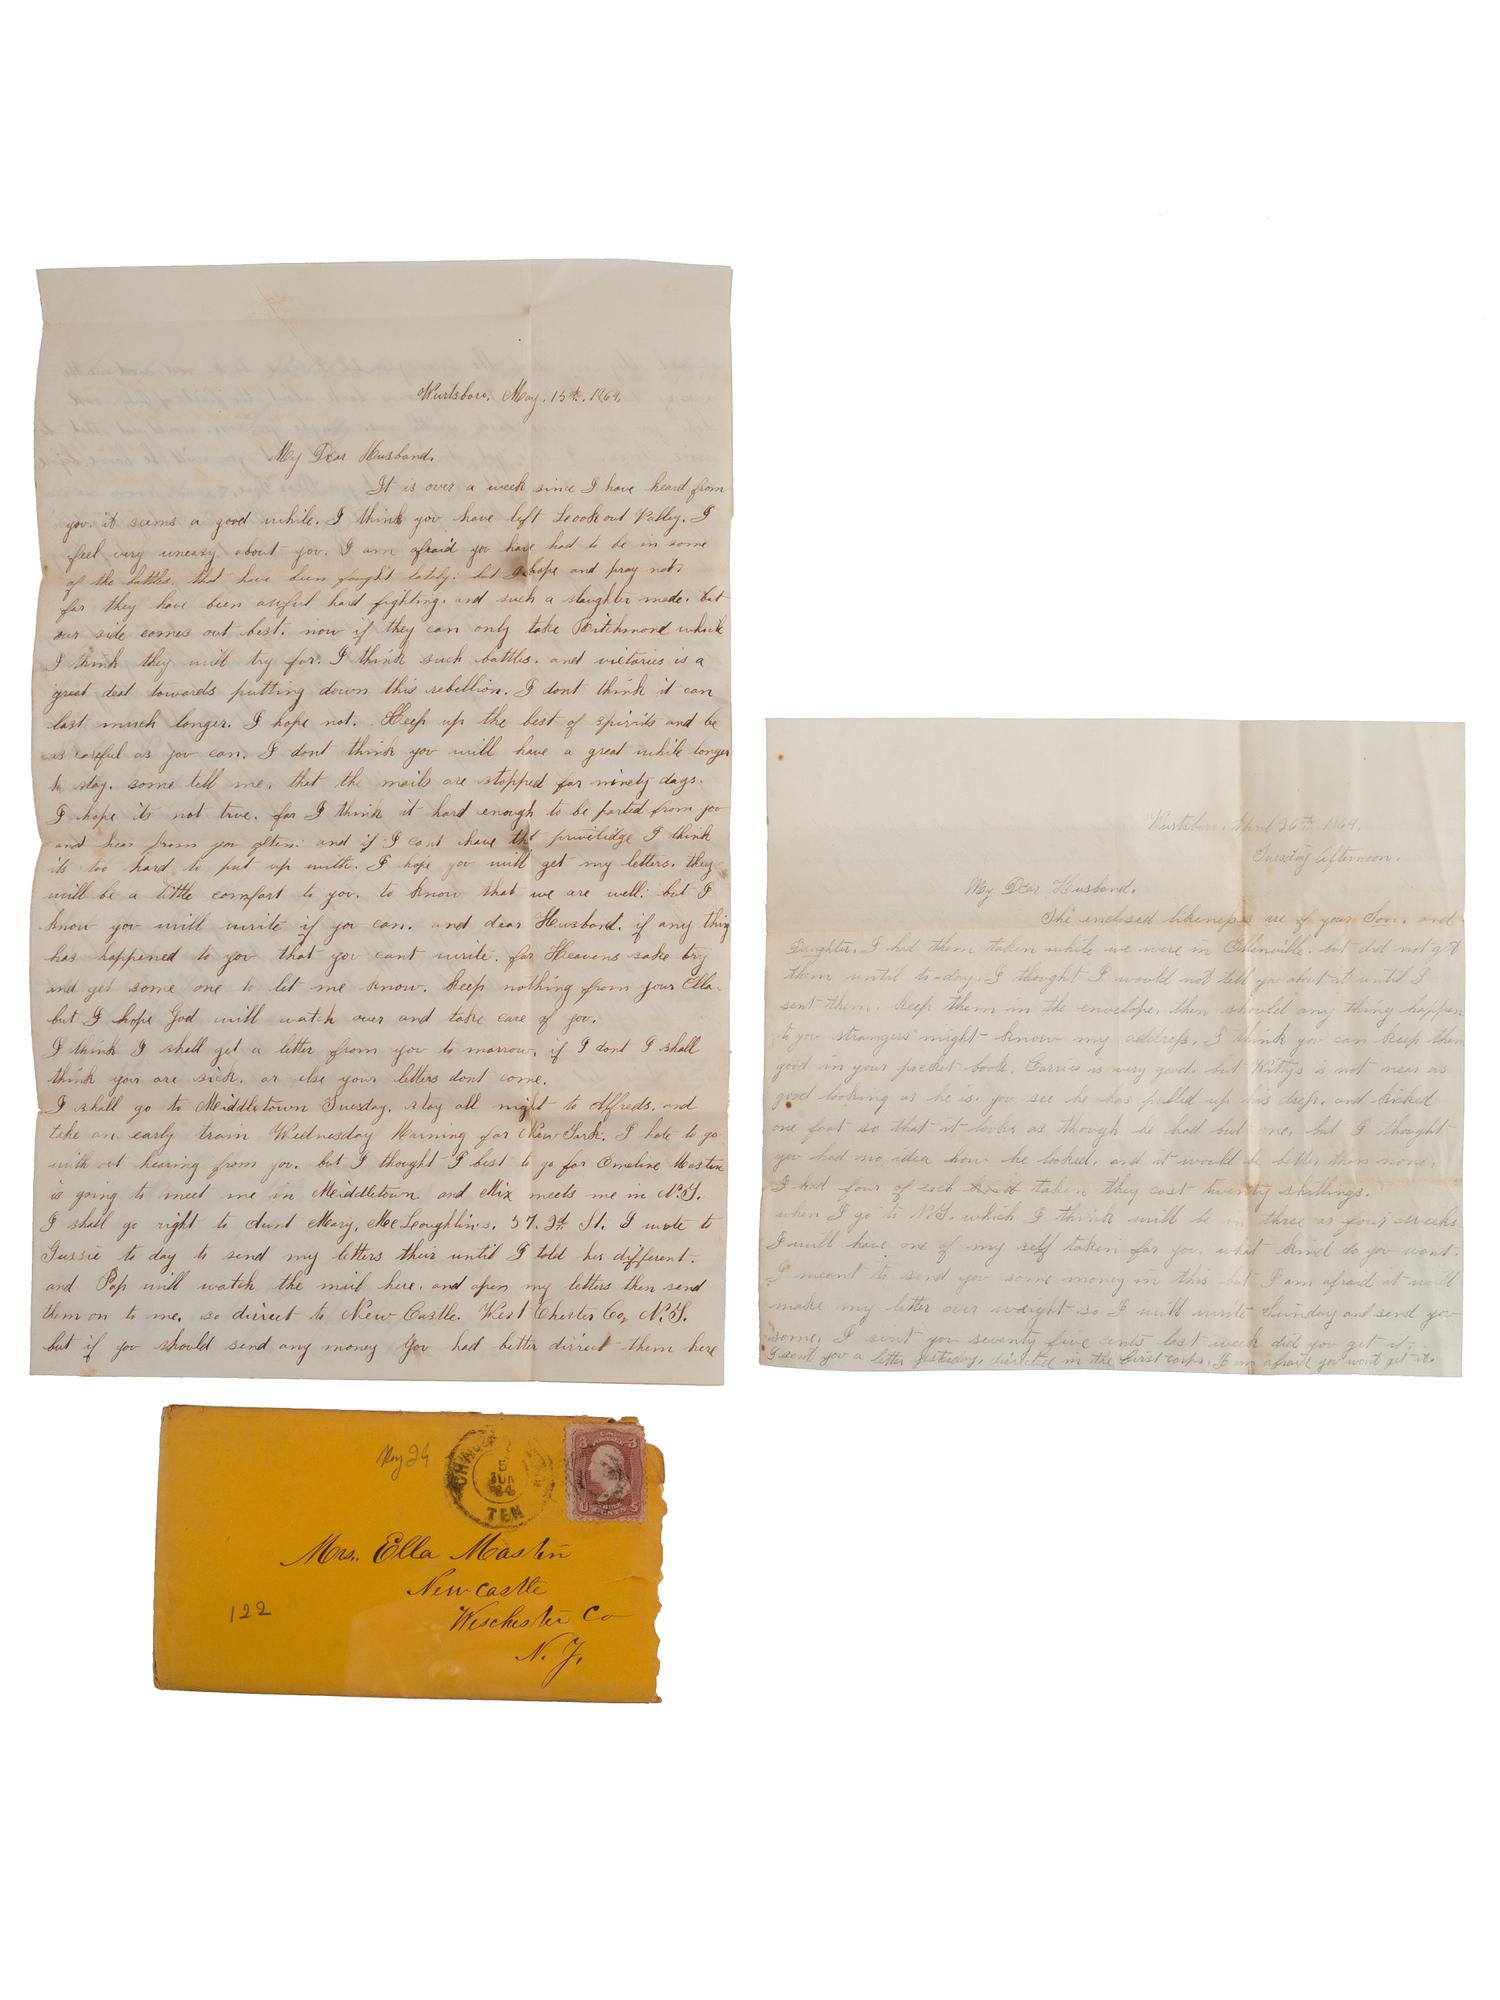 Wurtsboro, May. 15th. 1864.
My Dear Husband.
It is over a week since I have heard from
you. it seems a good while. I think you have left Loookout Valley. I
feel very uneasy about you. I am afraid you have had to be in some
of the battles. that have been fought lately: but I hope and pray not:
for they have been awful hard fighting. and such a slaughter made. but
our side comes out best. now if they can only take Ritchmond which
I think they will try for. I think such battles. and victories is a
great deal towards putting down this rebellion. I dont think it can
last much longer. I hope not. Keep up the best of spirits and be
as careful as you can. I dont think you will have a great while longer
to stay. some tell me, that the mails are stopped for ninety days.
I hope its not true. for I think it hard enough to be parted from you
and hear from you often: and if I cant have the privelidge I think
its too hard to put up with. I hope you will get my letters. they
will be a little comfort to you. to know that we are well: but I
know you will write if you can. and dear Husband. if any thing
has happened to you that you cant write. for Heavens sake try
and get some one to let me know. keep nothing from your Ella.
but I hope God will watch over and take care of you.
I think I shall get a letter from you to morrow. if I dont I shall
think you are sick. or else your letters dont come.
I shall go to Middletown Tuesday. stay all night to Alfreds. and
take an early train Wednesday Morning for New York. I hate to go
with out hearing from you. but I thought I best to go for Emeline Masten
is going to meet me in Middletown. and Mix meets me in N.Y.
I shall go right to Aunt Mary. McLoughlin's. 57. 9th St. I wrote to
Gussie to day to send my letters their until I told her different.
and Pap will watch the mail here. and open my letters then send
them on to me. so dirrect to New Castle. West Chester Co, N.Y.
but if you should send any money you had better dirrect them here
Wurtsboro. April 26th 1864.
Tuesday Afternoon.
My Dear Husband.
The enclosed likenesses are of your Son. and
Daughter. I had them taken while we were in Ellenville. but did not get
them until to-day. I thought I would not tell you about it until I
sent them. keep them in the envelope. then should any thing happen
to you strangers might know my address. I think you can keep them
good in your pocket book. Carries is very good. but Kittys is not near as
good looking as he is. you see he has pulled up his dress. and kicked
one foot so that it looks as though he had but one. but I thought
you had no idea how he looked. and it would be better than none.
I had four of each taken they cost twenty shillings.
when I go to N.Y. which I think will be in three or four weeks
I will have one of my self taken for you. what kind do you want.
I meant to send you some money in this but I am afraid it will
make my letter over weight so I will write Sunday and send you
some. I sent you seventy five cents last week did you get it:
I sent you a letter yesterday. dirrected in the first corps. I am afraid you wont get it.
May 29
5
JUN
64
TEN
3 3
U S
Mrs. Ella Masten
Newcastle
Weschester Co
122
N. Y.